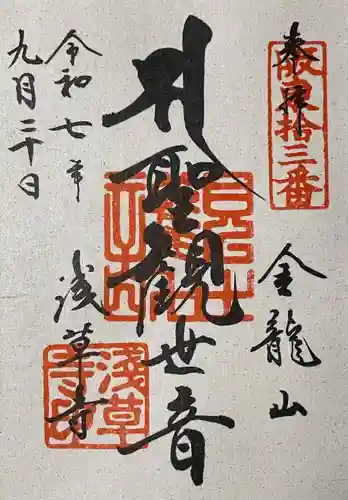 奉拝
坂東拾三番
金龍山
聖観世音
浅草寺
令和七年
九月二十日
浅草寺印